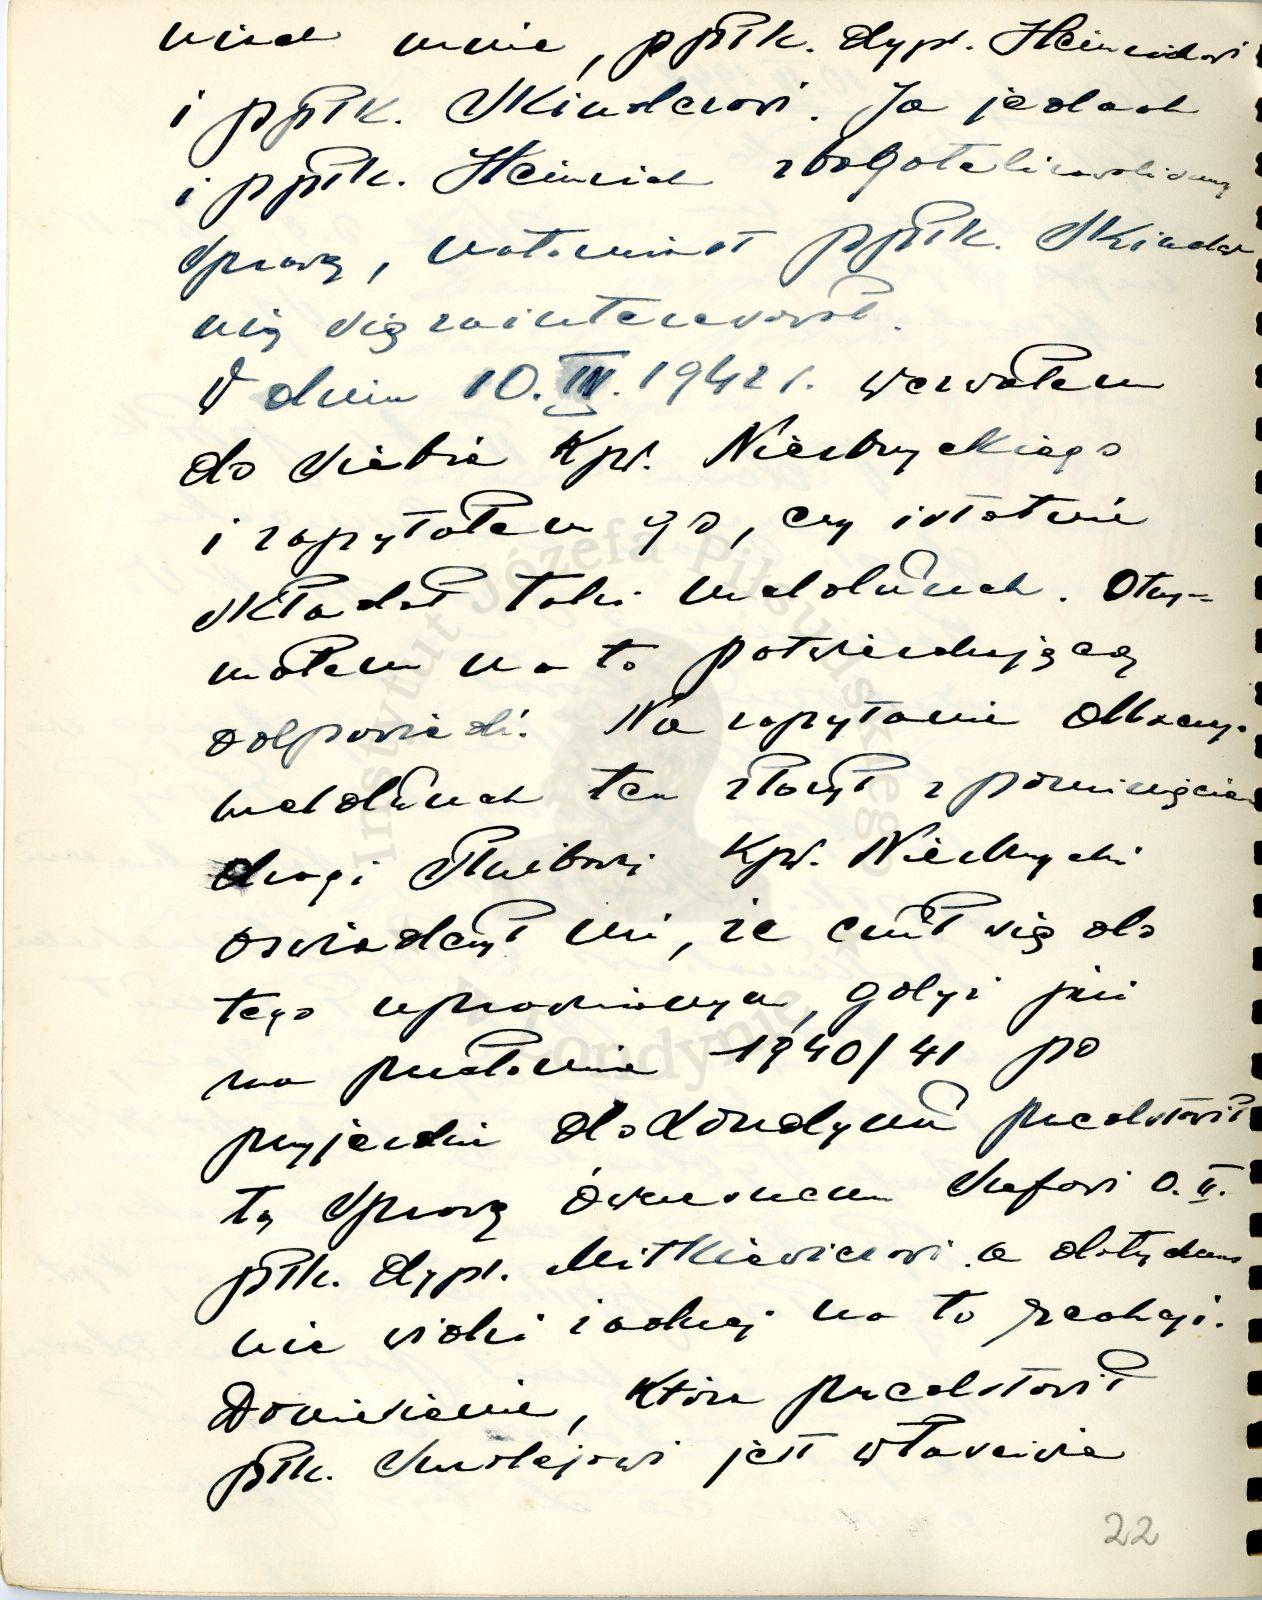 mnie, ppłk. dypl. Heinrichowi
i ppłk. Skinderowi. Ja jednak
i ppłk. Heinrich zbagatelizowaliśmy
sprawę, natomiast ppłk. Skinder
nią się zainteresował.
W dniu 10. III. 1942 r. wezwałem
do siebie kpt. Niezbrzyckiego
i zapytałem go, czy istotnie
składał taki meldunek. Otrzy-
małem na to potwierdzającą
odpowiedź. Na zapytanie dlaczego
meldunek ten złożył z pominięciem
drogi służbowej kpt. Niezbrzycki
oświadczył mi, że czuł się do
tego uprawnionym, gdyż już
na przełomie 1940/41 po
przyjeździe do Londynu przedstawił
tę sprawę ówczesnemu Szefowi O. II.
płk. dypl. Mitkiewiczowi a dotychczas
nie widzi żadnej na to reakcji.
Doniesienie, które przedstawił
płk. Smoleńowi jest właściwie
22
Instytut Józefa Piłsudskiego
w Londynie